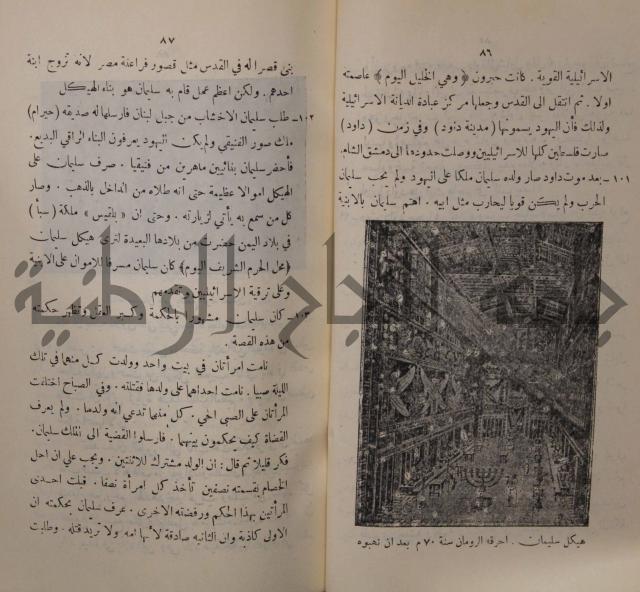 ٨٦
الاسرائيلية القوية . كانت حبرون ﴿ وهي الخليل اليوم ﴾ عاصمته
اولا . ثم انتقل الى القدس وجعلها مركز عبادة الديانة الاسرائيلية
ولذلك فأن اليهود يسمونها ( مدينة داود ) وفي زمن ( داود )
صارت فلسطين كلها للاسرائيليين ووصلت حدودها الى دمشق الشام.
١٠١ ـ بعد موت داود صار ولده سليمان ملكا على اليهود ولم يحب سليمان
الحرب ولم يكن قويا ليحارب مثل ابيه . اهتم سليمان بالابنية
هيكل سليمان . احرقه الرومان سنة ٧٠ م بعد ان نهبوه
٨٧
بنى قصرا له في القدس مثل قصور فراعنة مصر لانه تزوج ابنة
احدهم . ولكن اعظم عمل قام به سليمان هو بناء الهيكل
١٠٢ ـ طلب سليمان الاخشاب من جبل لبنان فارسلها له صديقه (حيرام)
ملك صور الفنيقي ولم يكن اليهود يعرفون البناء الراقي البديع.
فأحضر سليمان بنائيين ماهرين من فنيقيا . صرف سليمان على
الهيكل اموالا عظيمة حتى انه طلاه من الداخل بالذهب . وصار
كل من سمع به يأتي لزيارته . وحتى ان « بلقيس » ملكة (سبأ)
في بلاد اليمن حضرت من بلادها البعيدة لترى هيكل سليمان
﴿محل الحرم الشريف اليوم﴾ كان سليمان مسرفا للاموال على الابنية
وعلى ترقية الاسرائيليين وتقدمهم
١٠٣ ـ كان سليمان مشهورا بالحكمة وكبير العقل وتظهر حكمته
من هذه القصة .
نامت امرأتان في بيت واحد وولدت كل منهما في تلك
الليلة صبيا . نامت احداهما على ولدها فقتلته . وفي الصباح اختلفت
المرأتان على الصبي الحي . كل منهما تدعي انه ولدها . ولم يعرف
القضاة كيف يحكمون بينهما . فارسلوا القضية الى الملك سليمان.
فكر قليلا ثم قال : ان الولد مشترك للاثنتين . ويجب علي ان احل
الخصام بقسمته نصفين تأخذ كل امرأة نصفا . قبلت احدى
المرأتين بهذا الحكم ورفضته الاخرى . عرف سليمان بحكمته ان
الاولى كاذبة وان الثانيه صادقة لأنها امه ولا تريد قتله . وطلبت
جامعة النجاح الوطنية